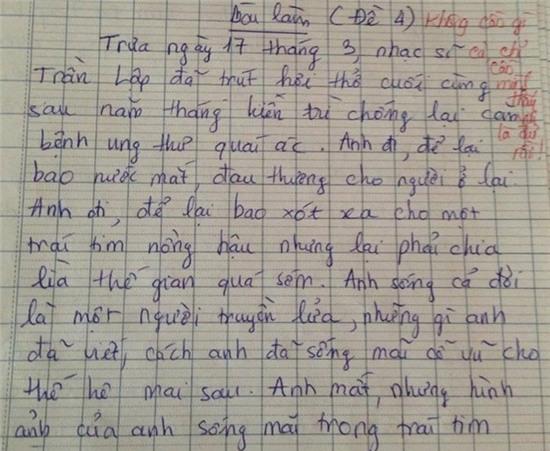 Bài làm (Đề 4) Không cần gì
Trưa ngày 17 tháng 3, nhạc sĩ cả chỉ
Trần Lập đã trút hơi thở cuối cùng cần một
sau năm tháng kiên trì chống lại căn
bệnh ung thư quái ác. Anh đi, để lại là đủ
bao nước mắt, đau thương cho người ở lại. rồi!
Anh đi, để lại bao xót xa cho một
trái tim nồng hậu nhưng lại phải chia
lìa thế gian quá sớm. Anh sống cả đời
là một người truyền lửa, những gì anh
đã viết, cách anh đã sống mãi cổ vũ cho
thế hệ mai sau. Anh mất, nhưng hình
ảnh của anh sống mãi trong trái tim